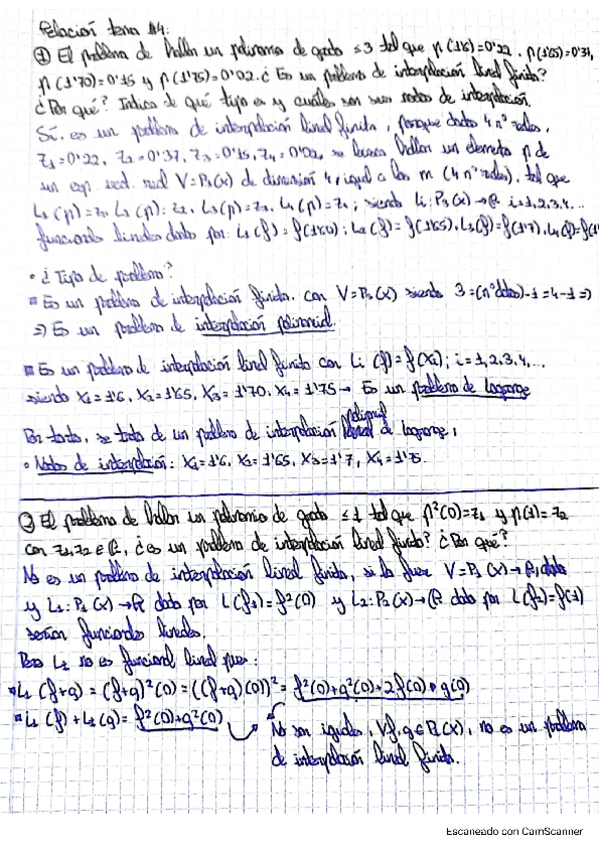 Relación tema 14:
① El problema de hallar un polinomio de grado ≤3 tal que p(1'6)=0'22, p(1'65)=0'37,
p(1'70)=0'15 y p(1'75)=0'02. ¿Es un problema de interpolación lineal finita?
¿Por qué? Indica de qué tipo es y cuáles son sus nodos de interpolación.
Sí, es un problema de interpolación lineal finita, porque dados 4 nº reales,
z₁=0'22, z₂=0'37, z₃=0'15, z₄=0'02, se busca hallar un elemento p de
un esp. vect. real V=P₃(x) de dimensión 4, igual a los m (4 nº reales), tal que
L₁(p)=z₁, L₂(p)=z₂, L₃(p)=z₃, L₄(p)=z₄; siendo Li: P₃(x)→ℝ i=1,2,3,4...
funcionales lineales dados por: L₁(f)=f(1'60); L₂(f)=f(1'65), L₃(f)=f(1'7), L₄(f)=f(1
• ¿Tipo de problema?
▪ Es un problema de interpolación finita. con V=P₃(x) siendo 3=(nº datos)-1=4-1=>
=> Es un problema de interpolación polinomial.
▪ Es un problema de interpolación lineal finita con Li(f)=f(xi); i=1,2,3,4,...
siendo x₁=1'6, x₂=1'65, x₃=1'70, x₄=1'75 → Es un problema de Lagrange
Por tanto, se trata de un problema de interpolación polinomial de Lagrange,
• Nodos de interpolación: x₁=1'6, x₂=1'65, x₃=1'7, x₄=1'75.
② El problema de hallar un polinomio de grado ≤1 tal que p²(0)=z₁ y p(1)=z₂
con z₁,z₂∈ℝ, ¿es un problema de interpolación lineal finita? ¿Por qué?
No es un problema de interpolación lineal finita, si lo fuera V=P₁(x)→ℝ, dado
y L₁: P₁(x)→ℝ dado por L(f₁)=f²(0) y L₂: P₁(x)→ℝ dado por L(f₂)=f(1)
serían funcionales lineales.
Pero L₁ no es funcional lineal pues:
▪ L₁(f+g)=(f+g)²(0)=((f+g)(0))²=f²(0)+g²(0)+2f(0)·g(0)
▪ L₁(f)+L₁(g)=f²(0)+g²(0)
No son iguales, ∀f,g∈P₁(x), no es un problema
de interpolación lineal finita.
Escaneado con CamScanner